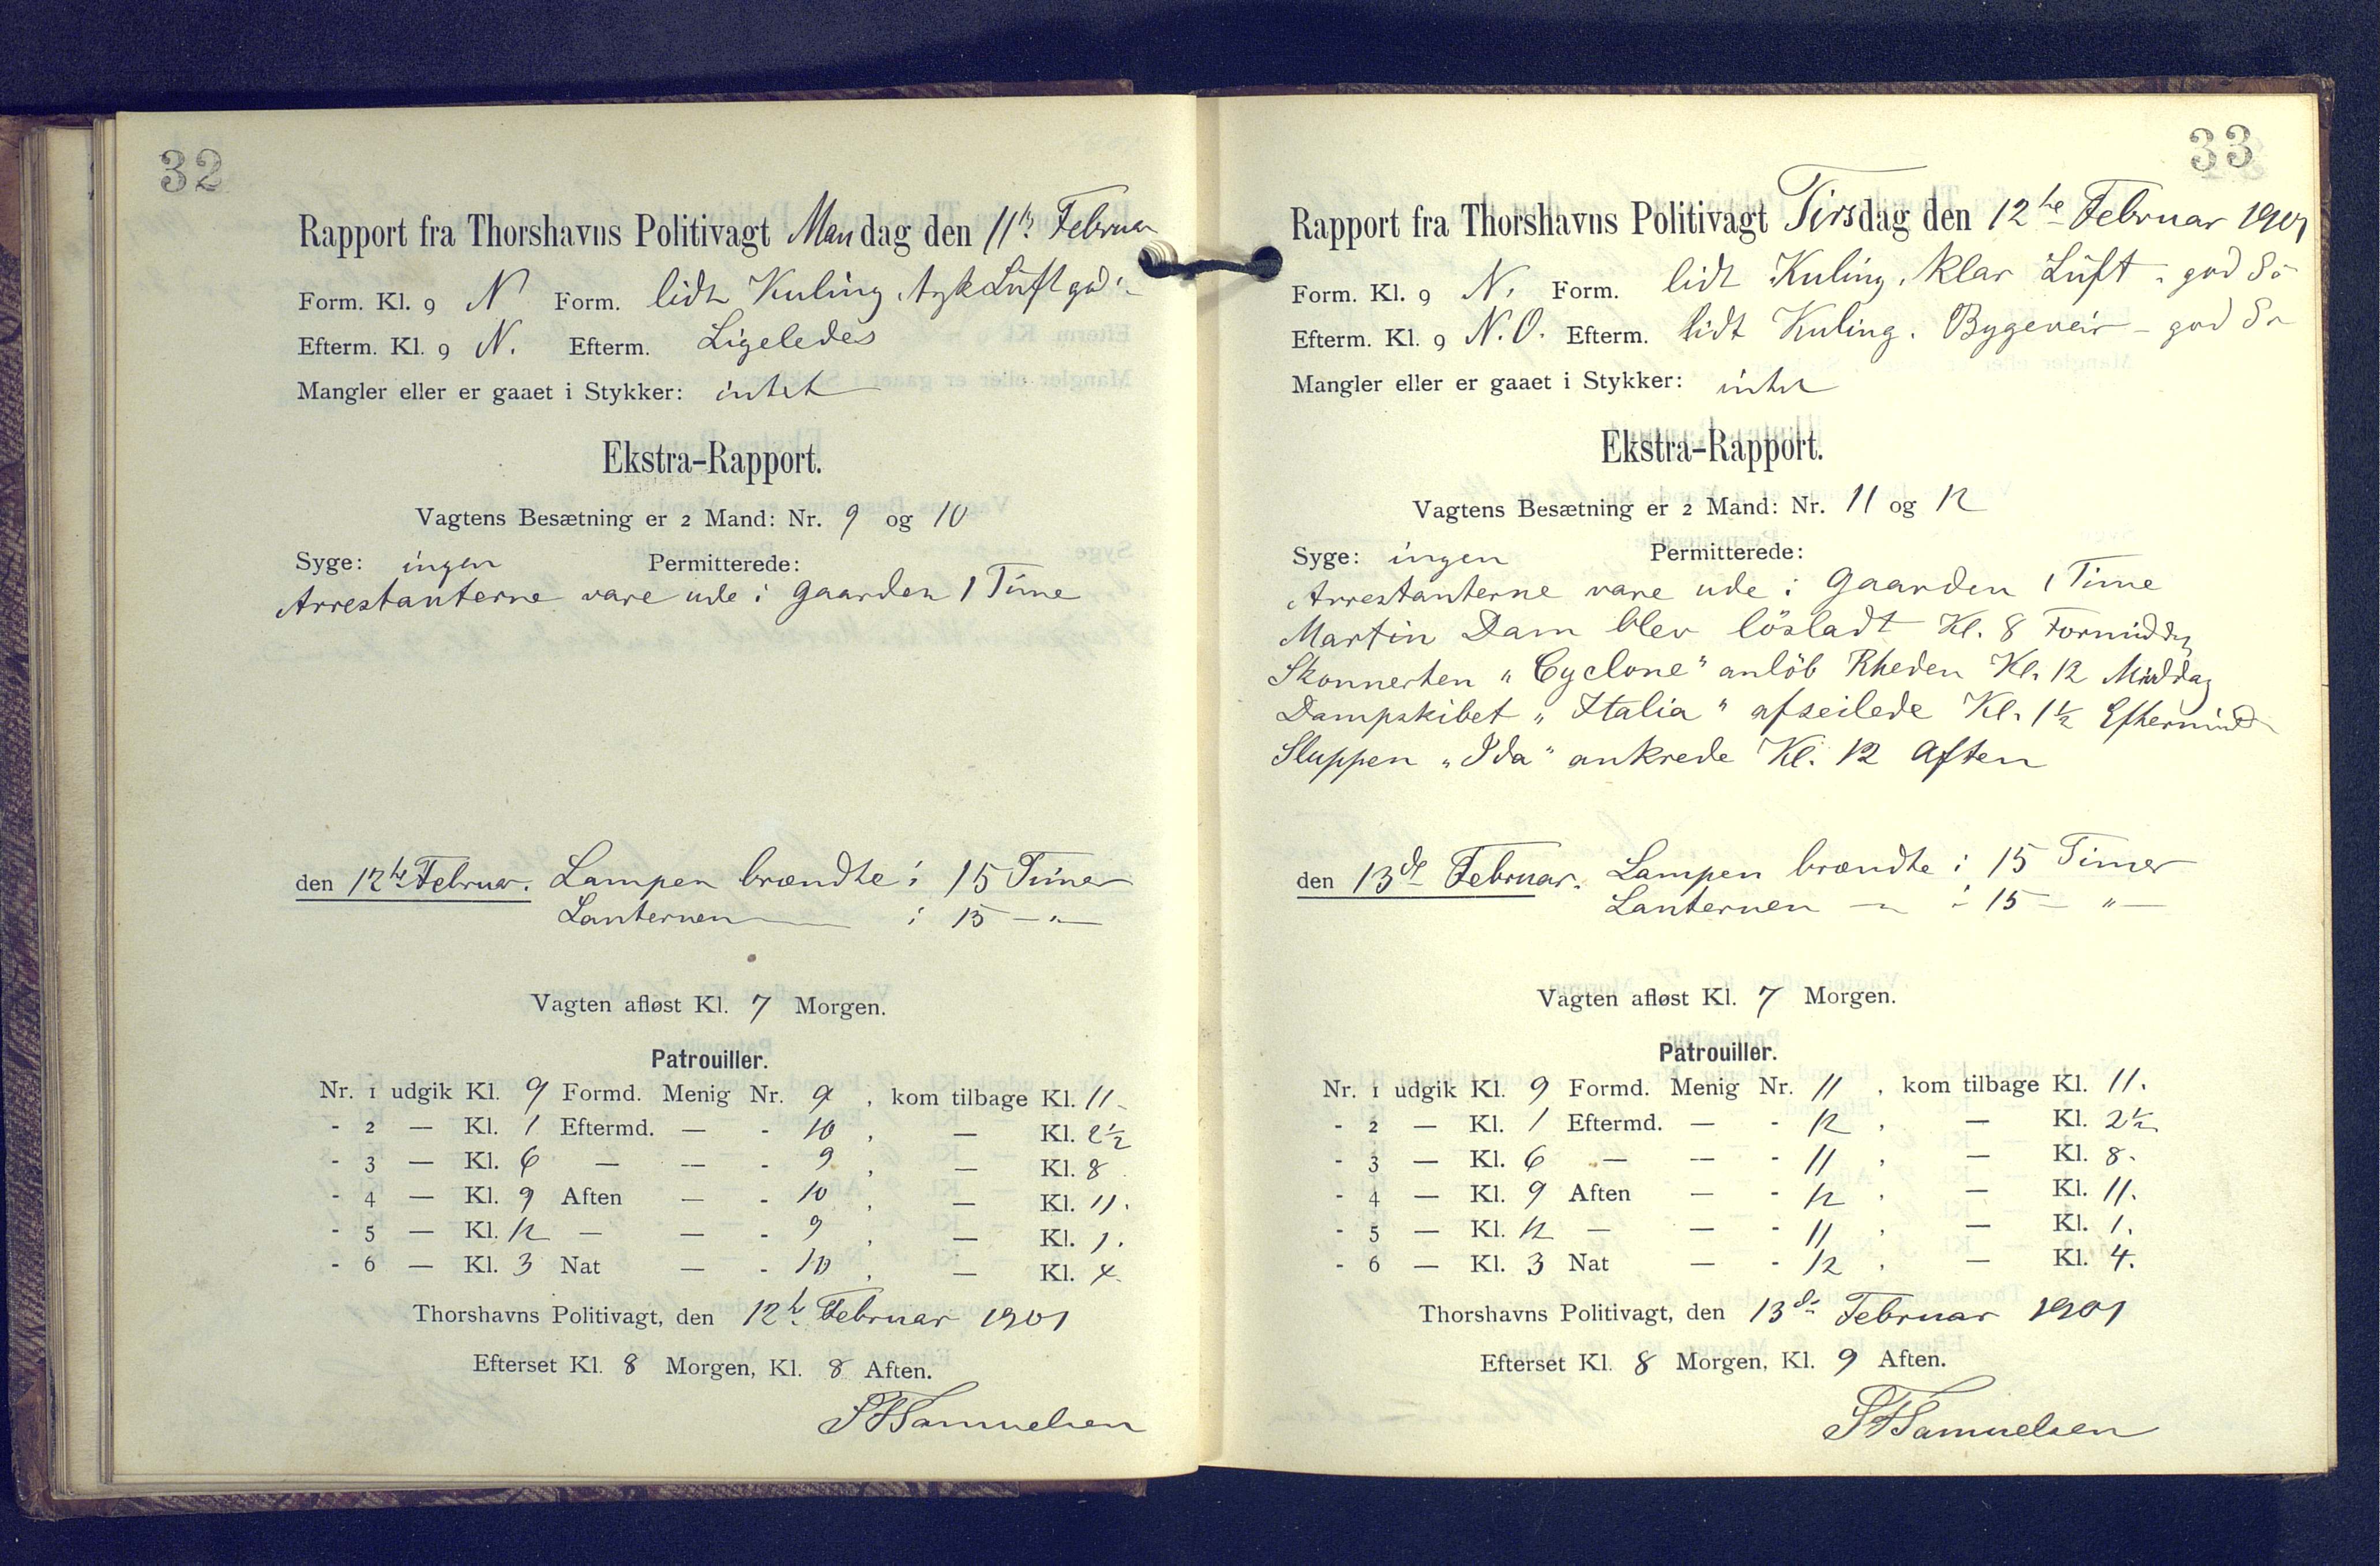 32
Rapport fra Thorshavns Politivagt Mandag den 11te Februar
Form. Kl. 9 N Form. lidt Kuling, tyk Luft god
Efterm. Kl. 9 N. Efterm. Ligeledes
Mangler eller er gaaet i Stykker: intet
Ekstra-Rapport.
Vagtens Besætning er 2 Mand: Nr. 9 og 10
Syge: ingen Permitterede:
Arrestanterne vare ude i Gaarden 1 Time
den 12te Februar. Lampen brændte i 15 Timer
Lanternen — i 15 — " —
Vagten afløst Kl. 7 Morgen.
Patrouiller.
Nr. 1 udgik Kl. 9 Formd. Menig Nr. 9, kom tilbage Kl. 11.
- 2 — Kl. 1 Eftermd. — - 10, — Kl. 2½
- 3 — Kl. 6 — — - 9, — Kl. 8
- 4 — Kl. 9 Aften — - 10, — Kl. 11.
- 5 — Kl. 12 — — - 9, — Kl. 1.
- 6 — Kl. 3 Nat — - 10, — Kl. 4.
Thorshavns Politivagt, den 12te Februar 1901
Efterset Kl. 8 Morgen, Kl. 8 Aften.
SFSamuelsen
33
Rapport fra Thorshavns Politivagt Tirsdag den 12te Februar 1901
Form. Kl. 9 N. Form. lidt Kuling, klar Luft - god Sö
Efterm. Kl. 9 N.O. Efterm. lidt Kuling. Bygeveir - god Sö
Mangler eller er gaaet i Stykker: intet
Ekstra-Rapport.
Vagtens Besætning er 2 Mand: Nr. 11 og 12
Syge: ingen Permitterede:
Arrestanterne vare ude i Gaarden 1 Time
Martin Dam blev lösladt Kl. 8 Formiddag
Skonnerten "Cyclone" anlöb Rheden Kl. 12 Middag
Dampskibet "Italia" afseilede Kl. 1½ Eftermidd
Sluppen "Ida" ankrede Kl. 12 Aften
den 13de Februar. Lampen brændte i 15 Timer
Lanternen — " — i 15 — " —
Vagten afløst Kl. 7 Morgen.
Patrouiller.
Nr. 1 udgik Kl. 9 Formd. Menig Nr. 11, kom tilbage Kl. 11.
- 2 — Kl. 1 Eftermd. — - 12, — Kl. 2½
- 3 — Kl. 6 — — - 11, — Kl. 8.
- 4 — Kl. 9 Aften — - 12, — Kl. 11.
- 5 — Kl. 12 — — - 11, — Kl. 1.
- 6 — Kl. 3 Nat — - 12, — Kl. 4.
Thorshavns Politivagt, den 13de Februar 1901
Efterset Kl. 8 Morgen, Kl. 9 Aften.
SFSamuelsen